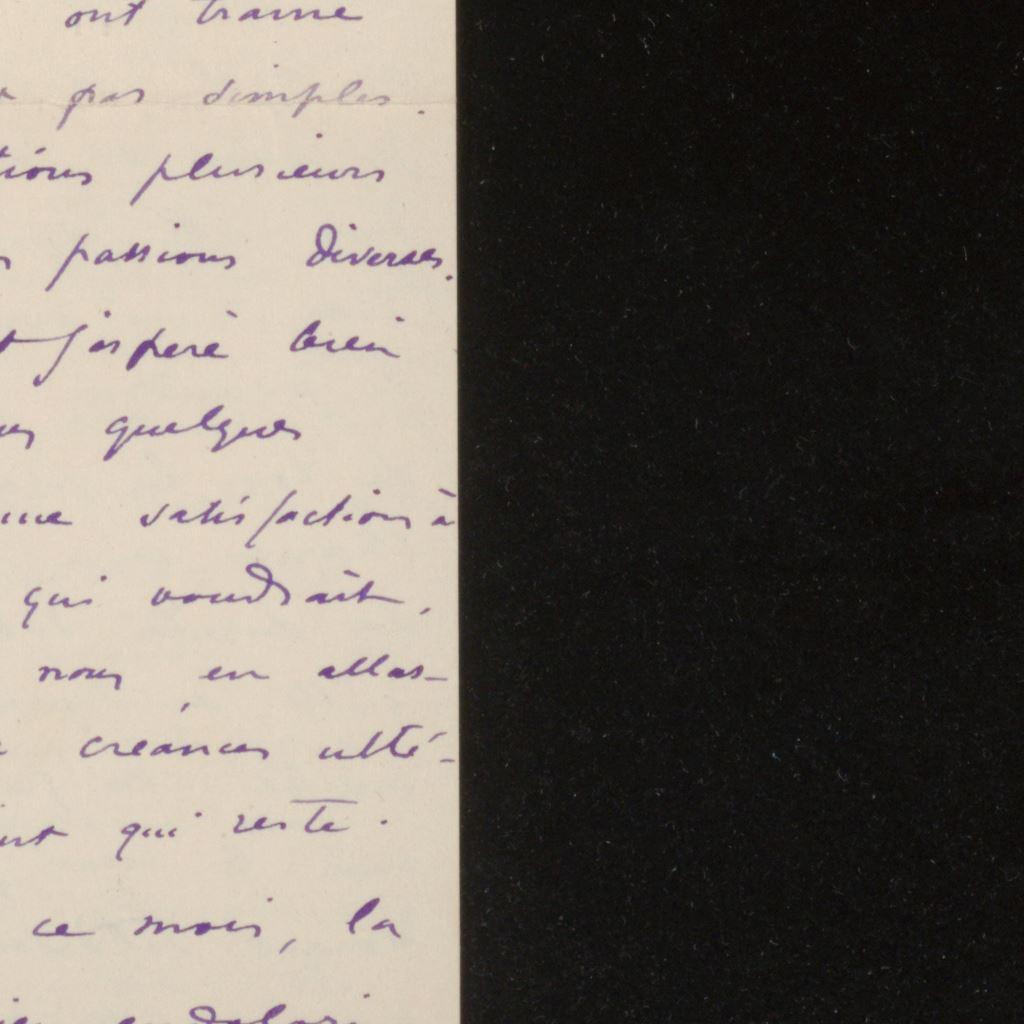 ont traîné
pas simples.
plusieurs
passions diverses.
j'espère bien
quelques
satisfactions à
qui voudrait,
nous en allas-
créances ulté-
qui reste.
ce mois, la